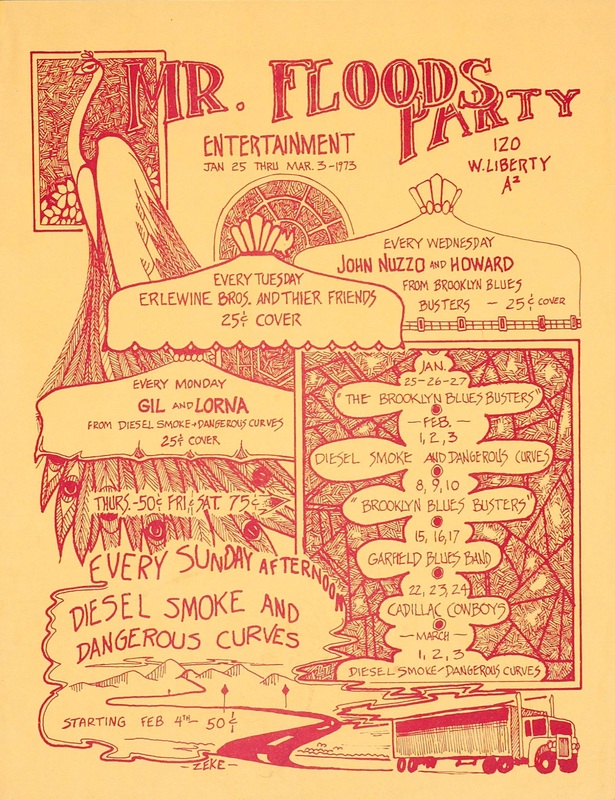 MR. FLOODS
PARTY
ENTERTAINMENT
JAN 25 THRU MAR. 3-1973
120
W. LIBERTY
A²
EVERY WEDNESDAY
JOHN NUZZO AND HOWARD
FROM BROOKLYN BLUES
BUSTERS - 25¢ COVER
EVERY TUESDAY
ERLEWINE BROS. AND THIER FRIENDS
25¢ COVER
EVERY MONDAY
GIL AND LORNA
FROM DIESEL SMOKE + DANGEROUS CURVES
25¢ COVER
THURS.-50¢ FRI & SAT. 75¢
JAN.
25-26-27
"THE BROOKLYN BLUES BUSTERS"
-FEB.-
1, 2, 3
DIESEL SMOKE AND DANGEROUS CURVES
8, 9, 10
"BROOKLYN BLUES BUSTERS"
15, 16, 17
GARFIELD BLUES BAND
22, 23, 24
CADILLAC COWBOYS
-MARCH-
1, 2, 3
DIESEL SMOKE-DANGEROUS CURVES
EVERY SUNDAY AFTERNOON
DIESEL SMOKE AND
DANGEROUS CURVES
STARTING FEB 4TH - 50¢
-ZEKE-